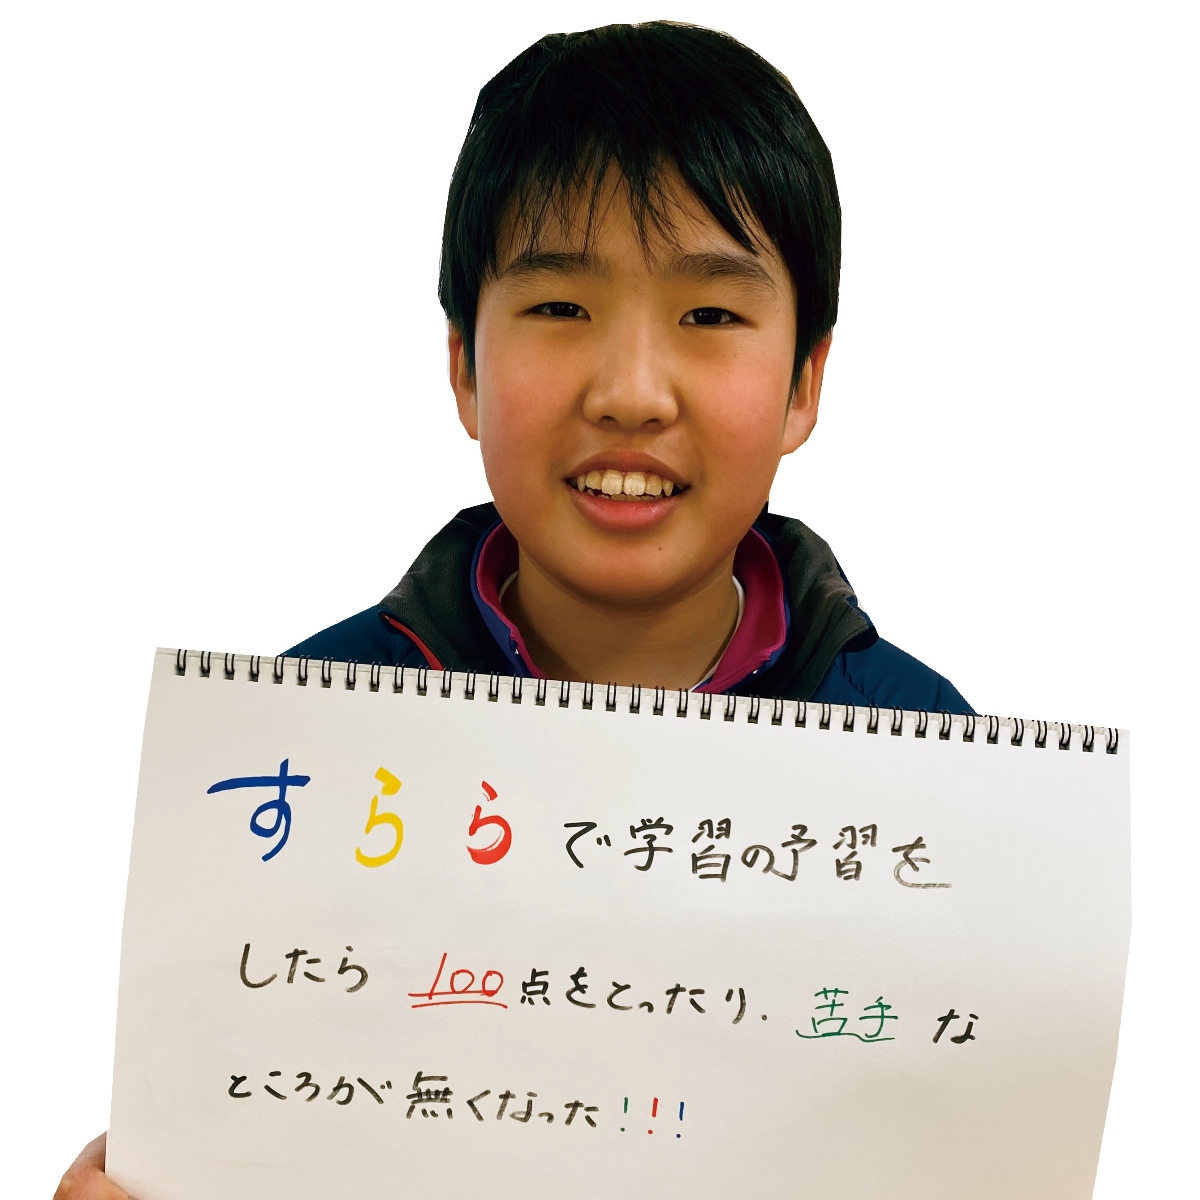 すららで学習の予習を
したら 100点をとったり、苦手な
ところが無くなった!!!